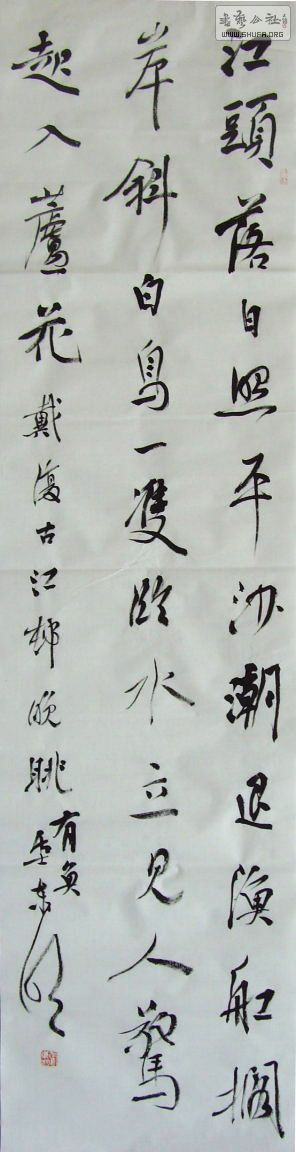 書藝公社
WWW.SHUFA.ORG
江頭落日照平沙潮退漁舡擱
岸斜白鳥一雙臨水立見人驚
起入蘆花戴復古江邨晚眺